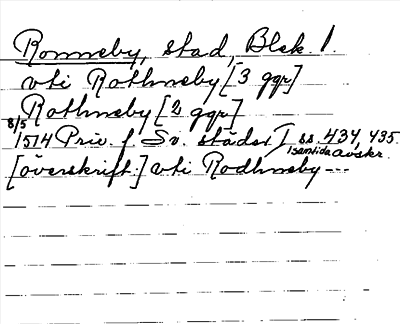 Ronneby, stad, Blek. l.
vti Rothneby [3 ggr]
Rothneby [2 ggr]
8/5 1514 Priv. f Sv. städer I ss. 434, 435
samtida avskr.
[överskrift:] vti Rodhneby ---